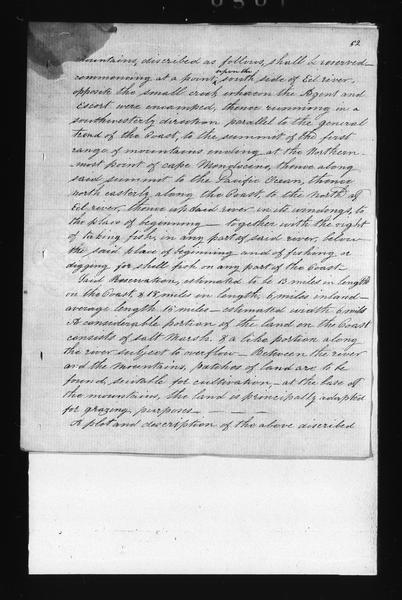 52
mountains, discribed as follows, shall be reserved—
commencing at a point upon the south side of Eel river,
opposite the small creek wheron the Agent and
Escort were encamped, thence running in a
southwesterly direction parallel to the general
trend of the Coast, to the summit of the first
range of mountains ending at the Northern
most point of cape Mendocino, thence along
said summit to the Pacific Ocean, thence
north easterly along the Coast, to the North of
Eel river, thence up said river in its windings, to
the place of beginning— together with the right
of taking fish, in any part of said river, below
the said place of beginning and of fishing, or
digging for shell fish on any part of the Coast
Said Reservation, estimated to be 13 miles in length
on the Coast, & 18 miles in length, 6 miles inland—
average length miles— estimated width 6 miles
A considerable portion of the land on the Coast
consists of salt Marsh, & a like portion along
the river subject to overflow— Between the river
and the Mountains, patches of land are to be
found, suitable for cultivation,— at the base of
the mountains, the land is principally adapted
for grazing purposes— — —
A plot and discription of the above discribed